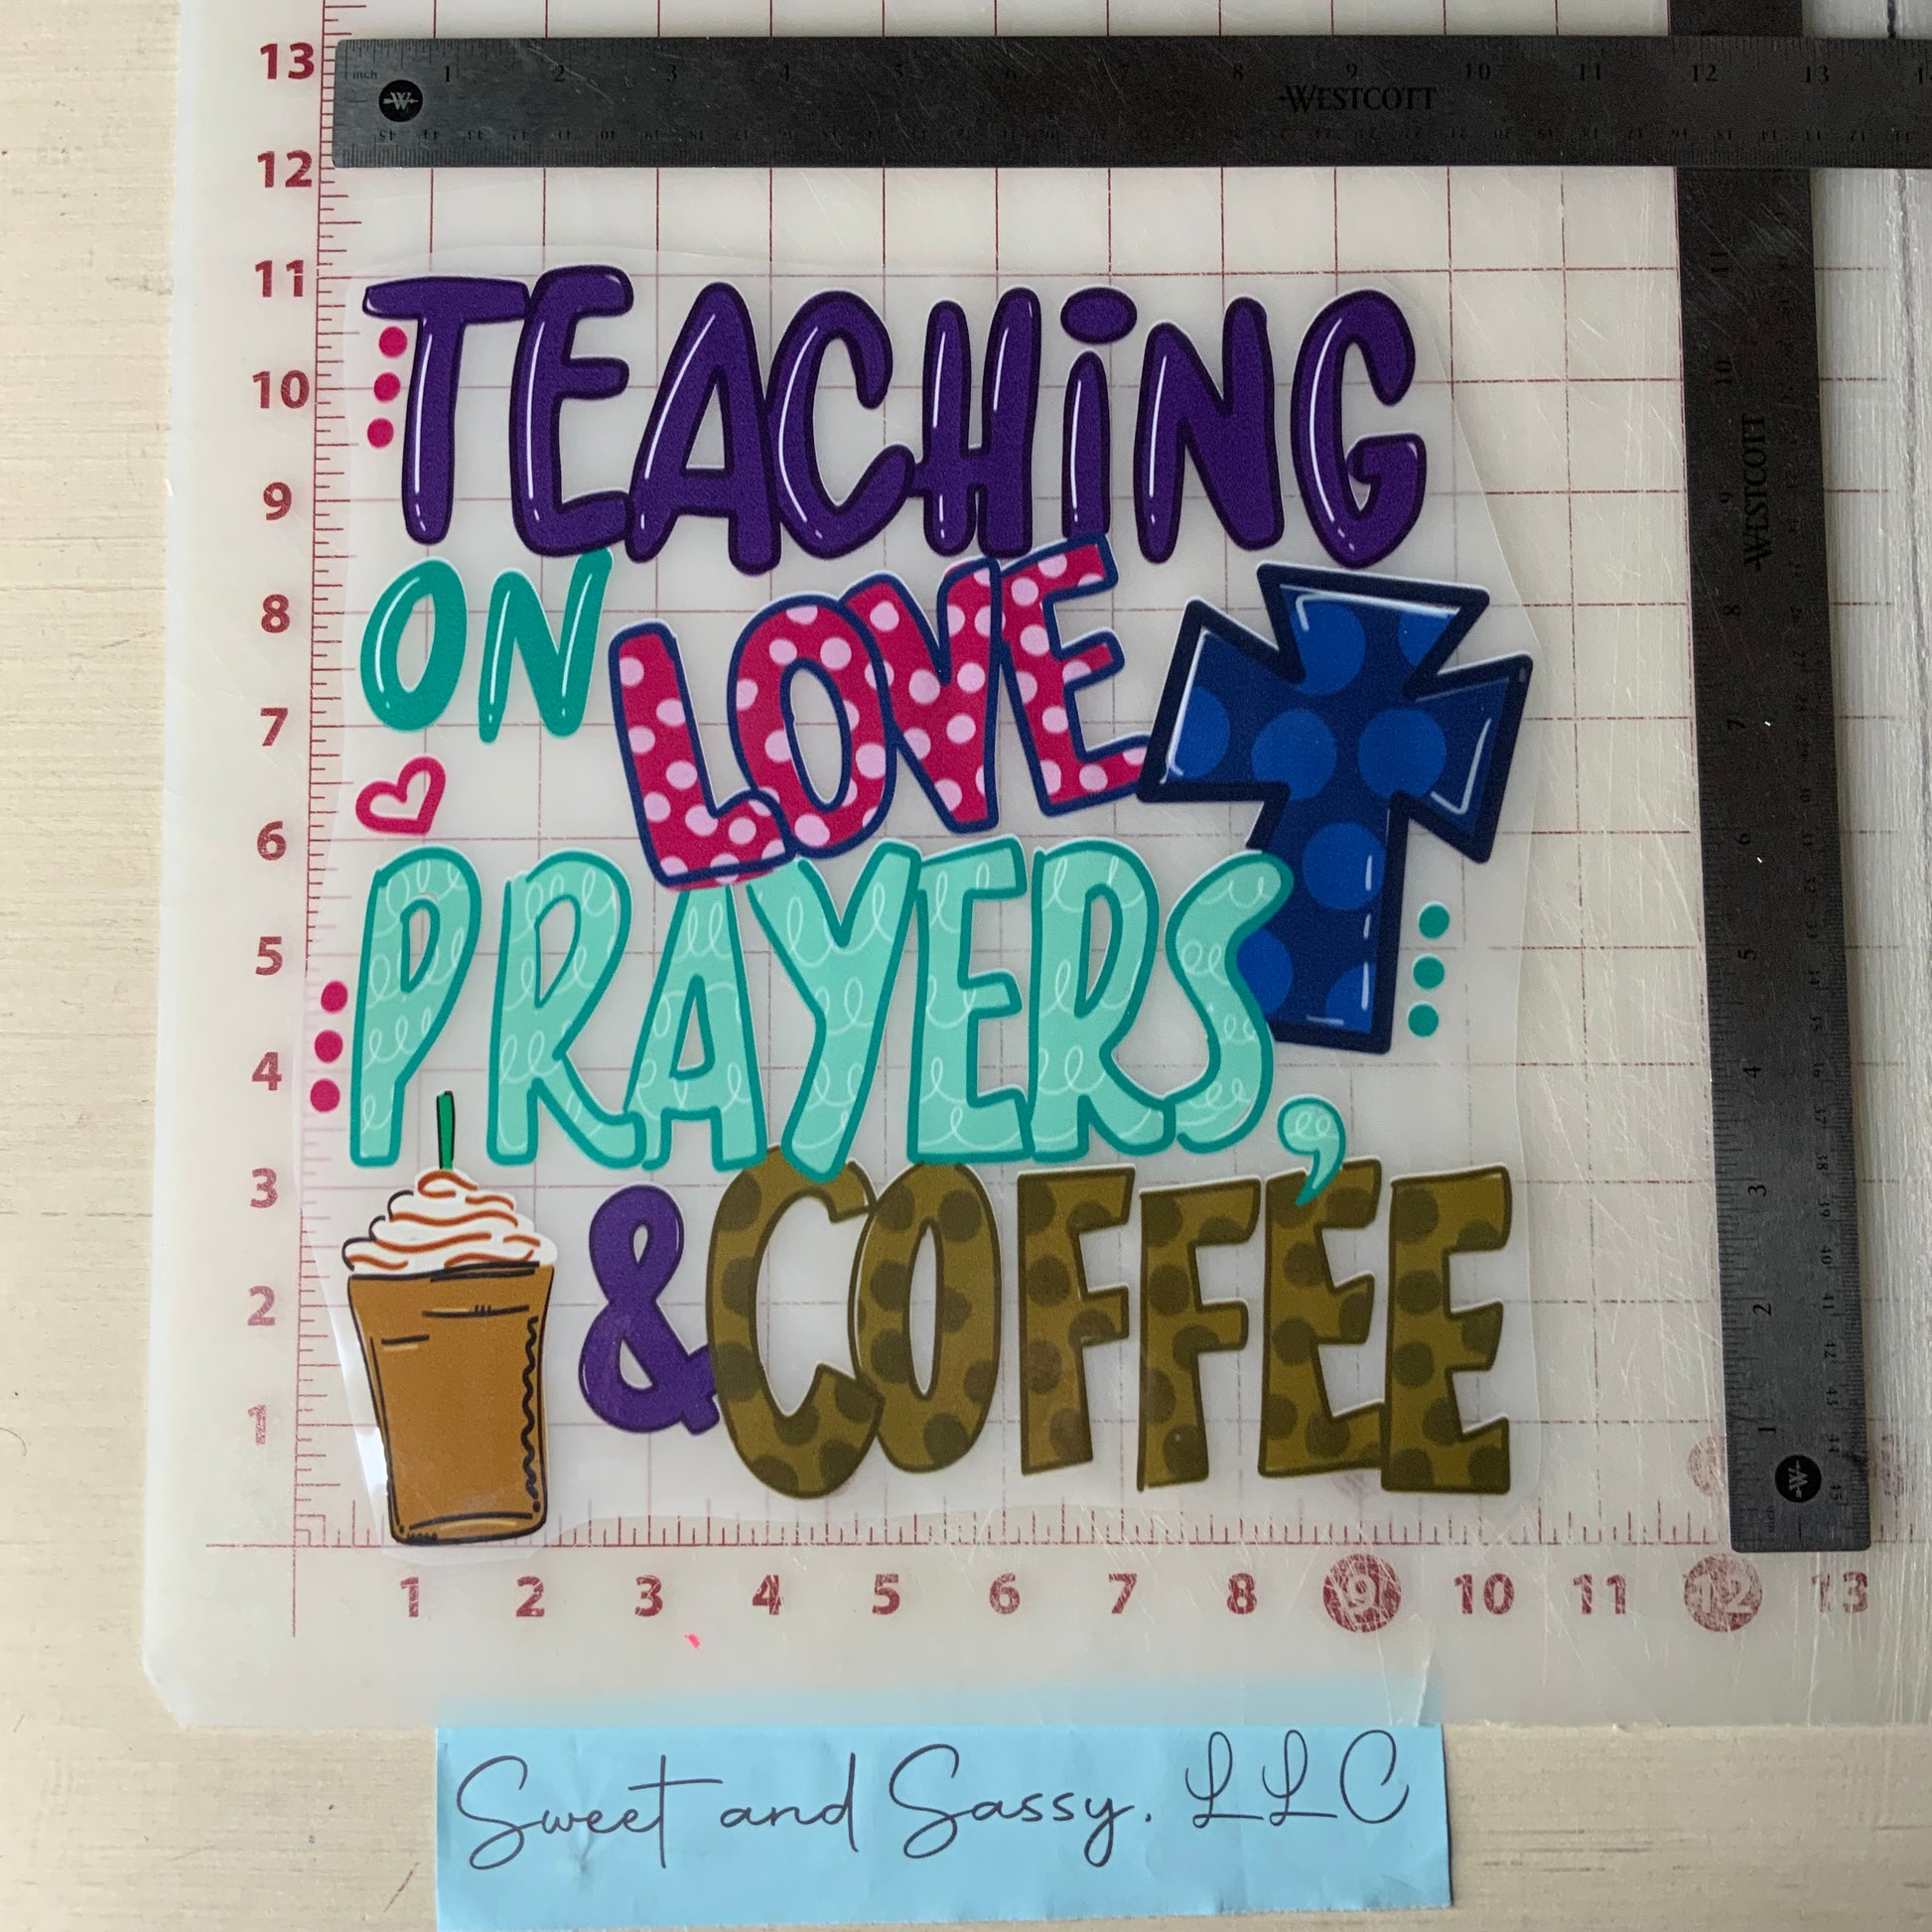 13
inch 1 2 3 4 5 6 7 8 9 10 11 12 13
WESTCOTT
12
11
TEACHiNG
10
9
ON LOVE
8
7
6
PRAYERS,
5
4
3
& COFFEE
2
1
11
10
9
WESTCOTT
8
7
6
5
4
3
2
1
1 2 3 4 5 6 7 8 9 10 11 12 13
Sweet and Sassy, LLC